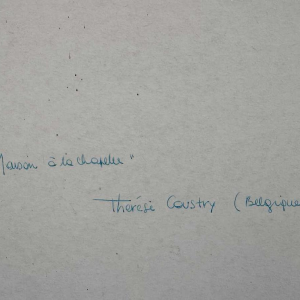 Maison à la chapelle"
Thérèse Coustry (Belgique